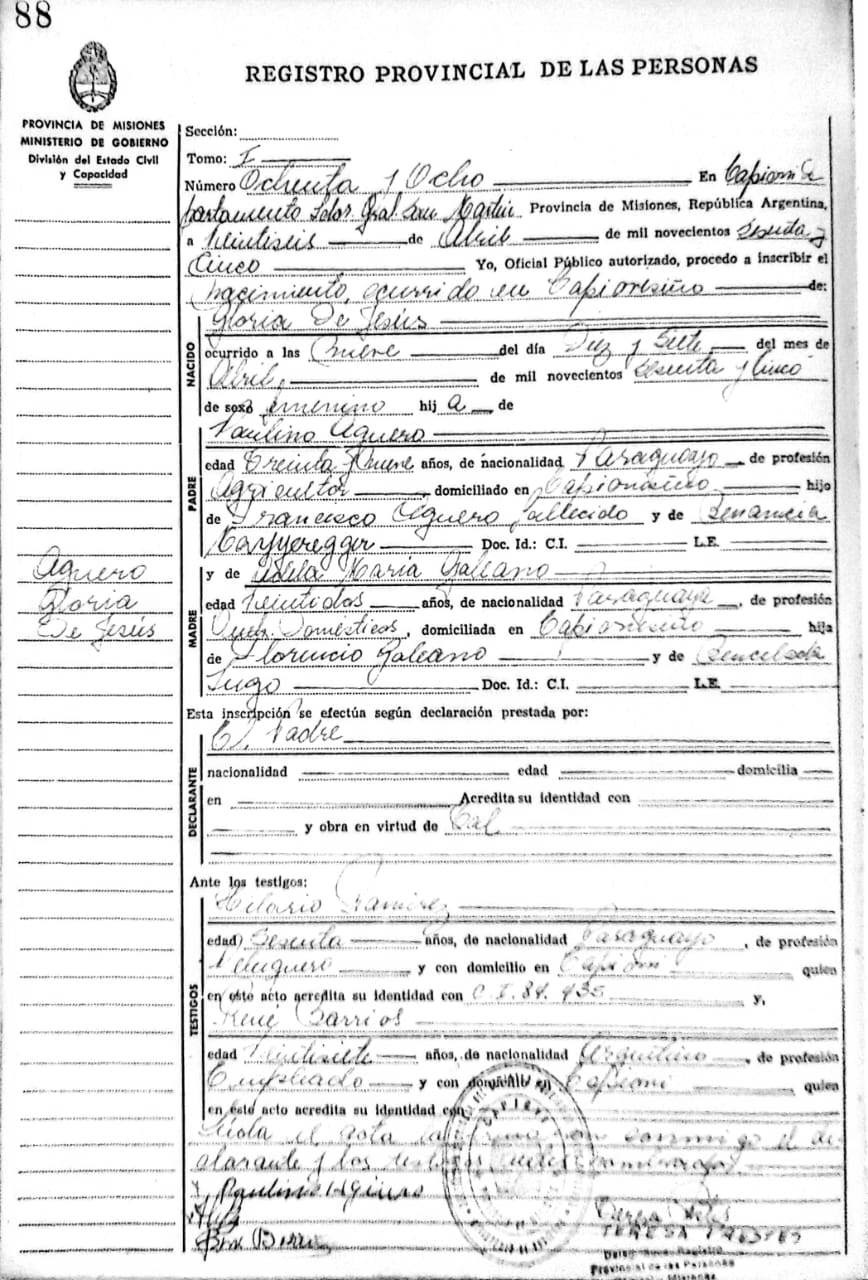 88
REGISTRO PROVINCIAL DE LAS PERSONAS
PROVINCIA DE MISIONES
MINISTERIO DE GOBIERNO
División del Estado Civil
y Capacidad
Sección:
Tomo: I
Número Ochenta y Ocho En Capioví De
partamento Ldor. Gral. San Martín Provincia de Misiones, República Argentina,
a Veintiseis de Abril de mil novecientos Sesenta y
Cinco Yo, Oficial Público autorizado, procedo a inscribir el
nacimiento, ocurrido en Capioviciño de:
NACIDO
Gloria De Jesús
ocurrido a las nueve del día Diez y Siete del mes de
Abril, de mil novecientos Sesenta y Cinco
de sexo femenino hij a de
PADRE
Paulino Aguero
edad Treinta y nueve años, de nacionalidad Paraguayo de profesión
Agricultor domiciliado en Capioviciño hijo
de Francisco Aguero fallecido y de Benancia
Doc. Id.: C.I. L.E.
Aguero
Gloria
De Jesús
MADRE
y de Adela María Galeano
edad Veintidos años, de nacionalidad Paraguaya, de profesión
Queh. Domésticos, domiciliada en Capioviciño hija
de Florencio Galeano y de Bencelada
Lugo Doc. Id.: C.I. L.E.
Esta inscripción se efectúa según declaración prestada por:
DECLARANTE
El Padre
nacionalidad edad domicilia
en Acredita su identidad con
y obra en virtud de Tal
Ante los testigos:
TESTIGOS
Hilario Ramirez
edad Sesenta años, de nacionalidad Paraguayo, de profesión
y con domicilio en Capioví quien
en esté acto acredita su identidad con C.I. 84. 935 y,
René Barrios
edad Veintisiete años, de nacionalidad Argentino, de profesión
Empleado y con domicilio en Capioví quien
en esté acto acredita su identidad con
Leída el acta la firma con conmigo el de
clarante y los testigos
Paulino Aguero
TERESA
Registro
Provincial de las Personas
Misiones